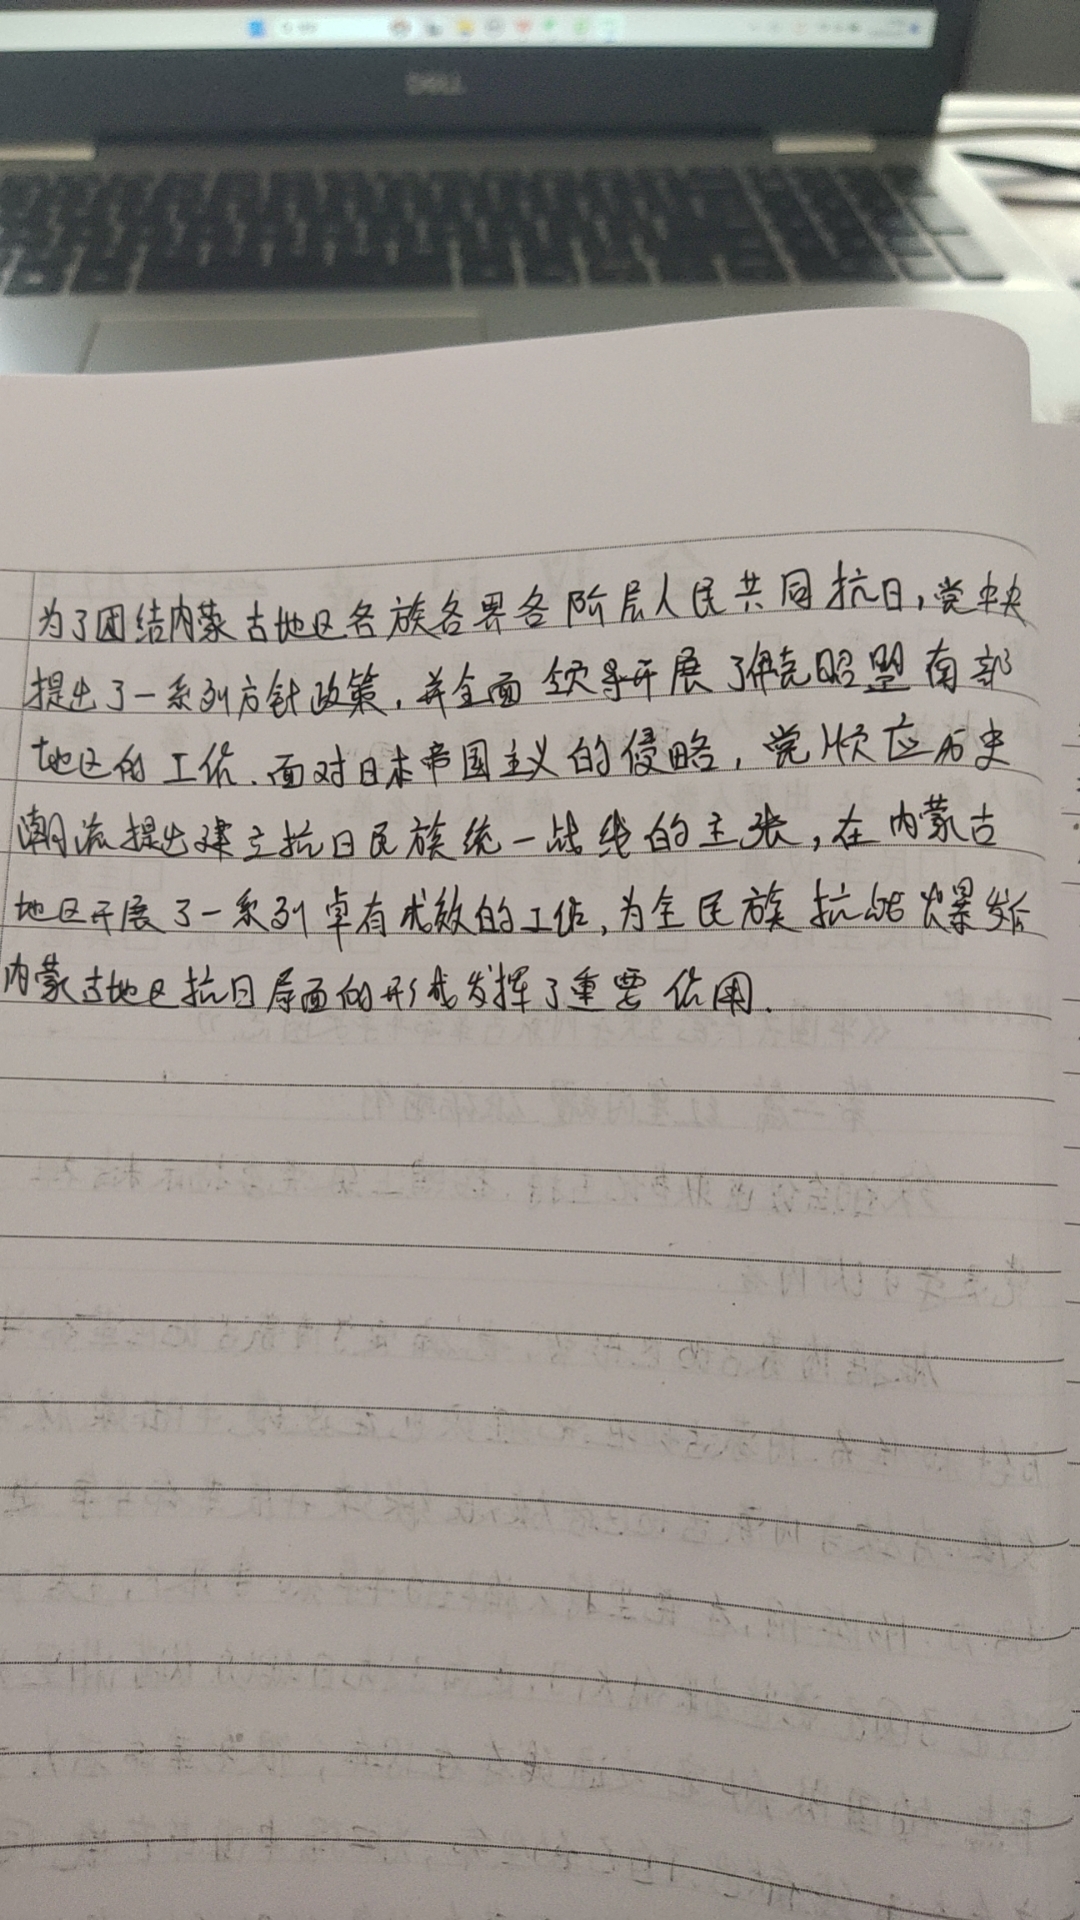 DELL
为了团结内蒙古地区各族各界各阶层人民共同抗日，党中央
提出了一系列方针政策，并全面领导开展了伊克昭盟南部
地区的工作、面对日本帝国主义的侵略，党顺应历史
潮流提出建立抗日民族统一战线的主张，在内蒙古
地区开展了一系列卓有成效的工作，为全民族抗战爆发后
内蒙古地区抗日局面的形成发挥了重要作用.